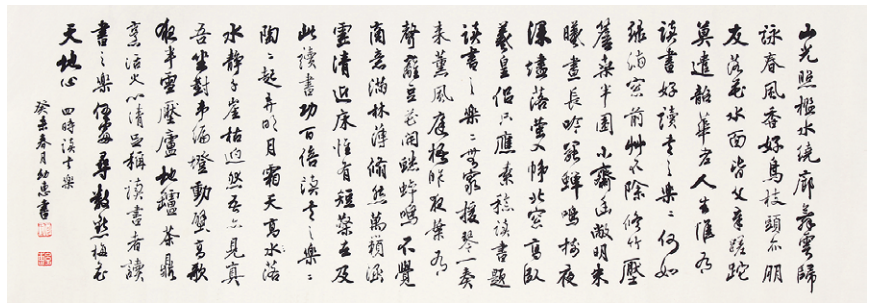 山光照檻水繞廊舞雩歸
詠春風香好鳥枝頭亦朋
友落花水面皆文章蹉跎
莫遣韶華老人生惟有
讀書好讀書之樂々何如
綠滿窗前艸不除修竹壓
簷桑半圍小齋幽敞明朱
曦晝長吟罷蟬鳴樹夜
深燼落螢入幃北窗高臥
羲皇侶只應素稔讀書趣
讀書之樂々無窮援琴一奏
来薰風庭梧昨夜葉有
聲籬豆花開蟋蟀鳴不覺
商意滿林薄翛然萬籟涵
靈清近床惟有短檠在及
此讀書功百倍讀書之樂々
陶々起弄明月霜天高水落
木靜千崖枯迥然吾亦見真
吾坐對韋編燈動壁高歌
夜半雪壓廬地罏茶鼎
烹活火心清足稱讀書者讀
書之樂何處尋數點梅花
天地心 四時讀書樂
癸未春月幼惠書